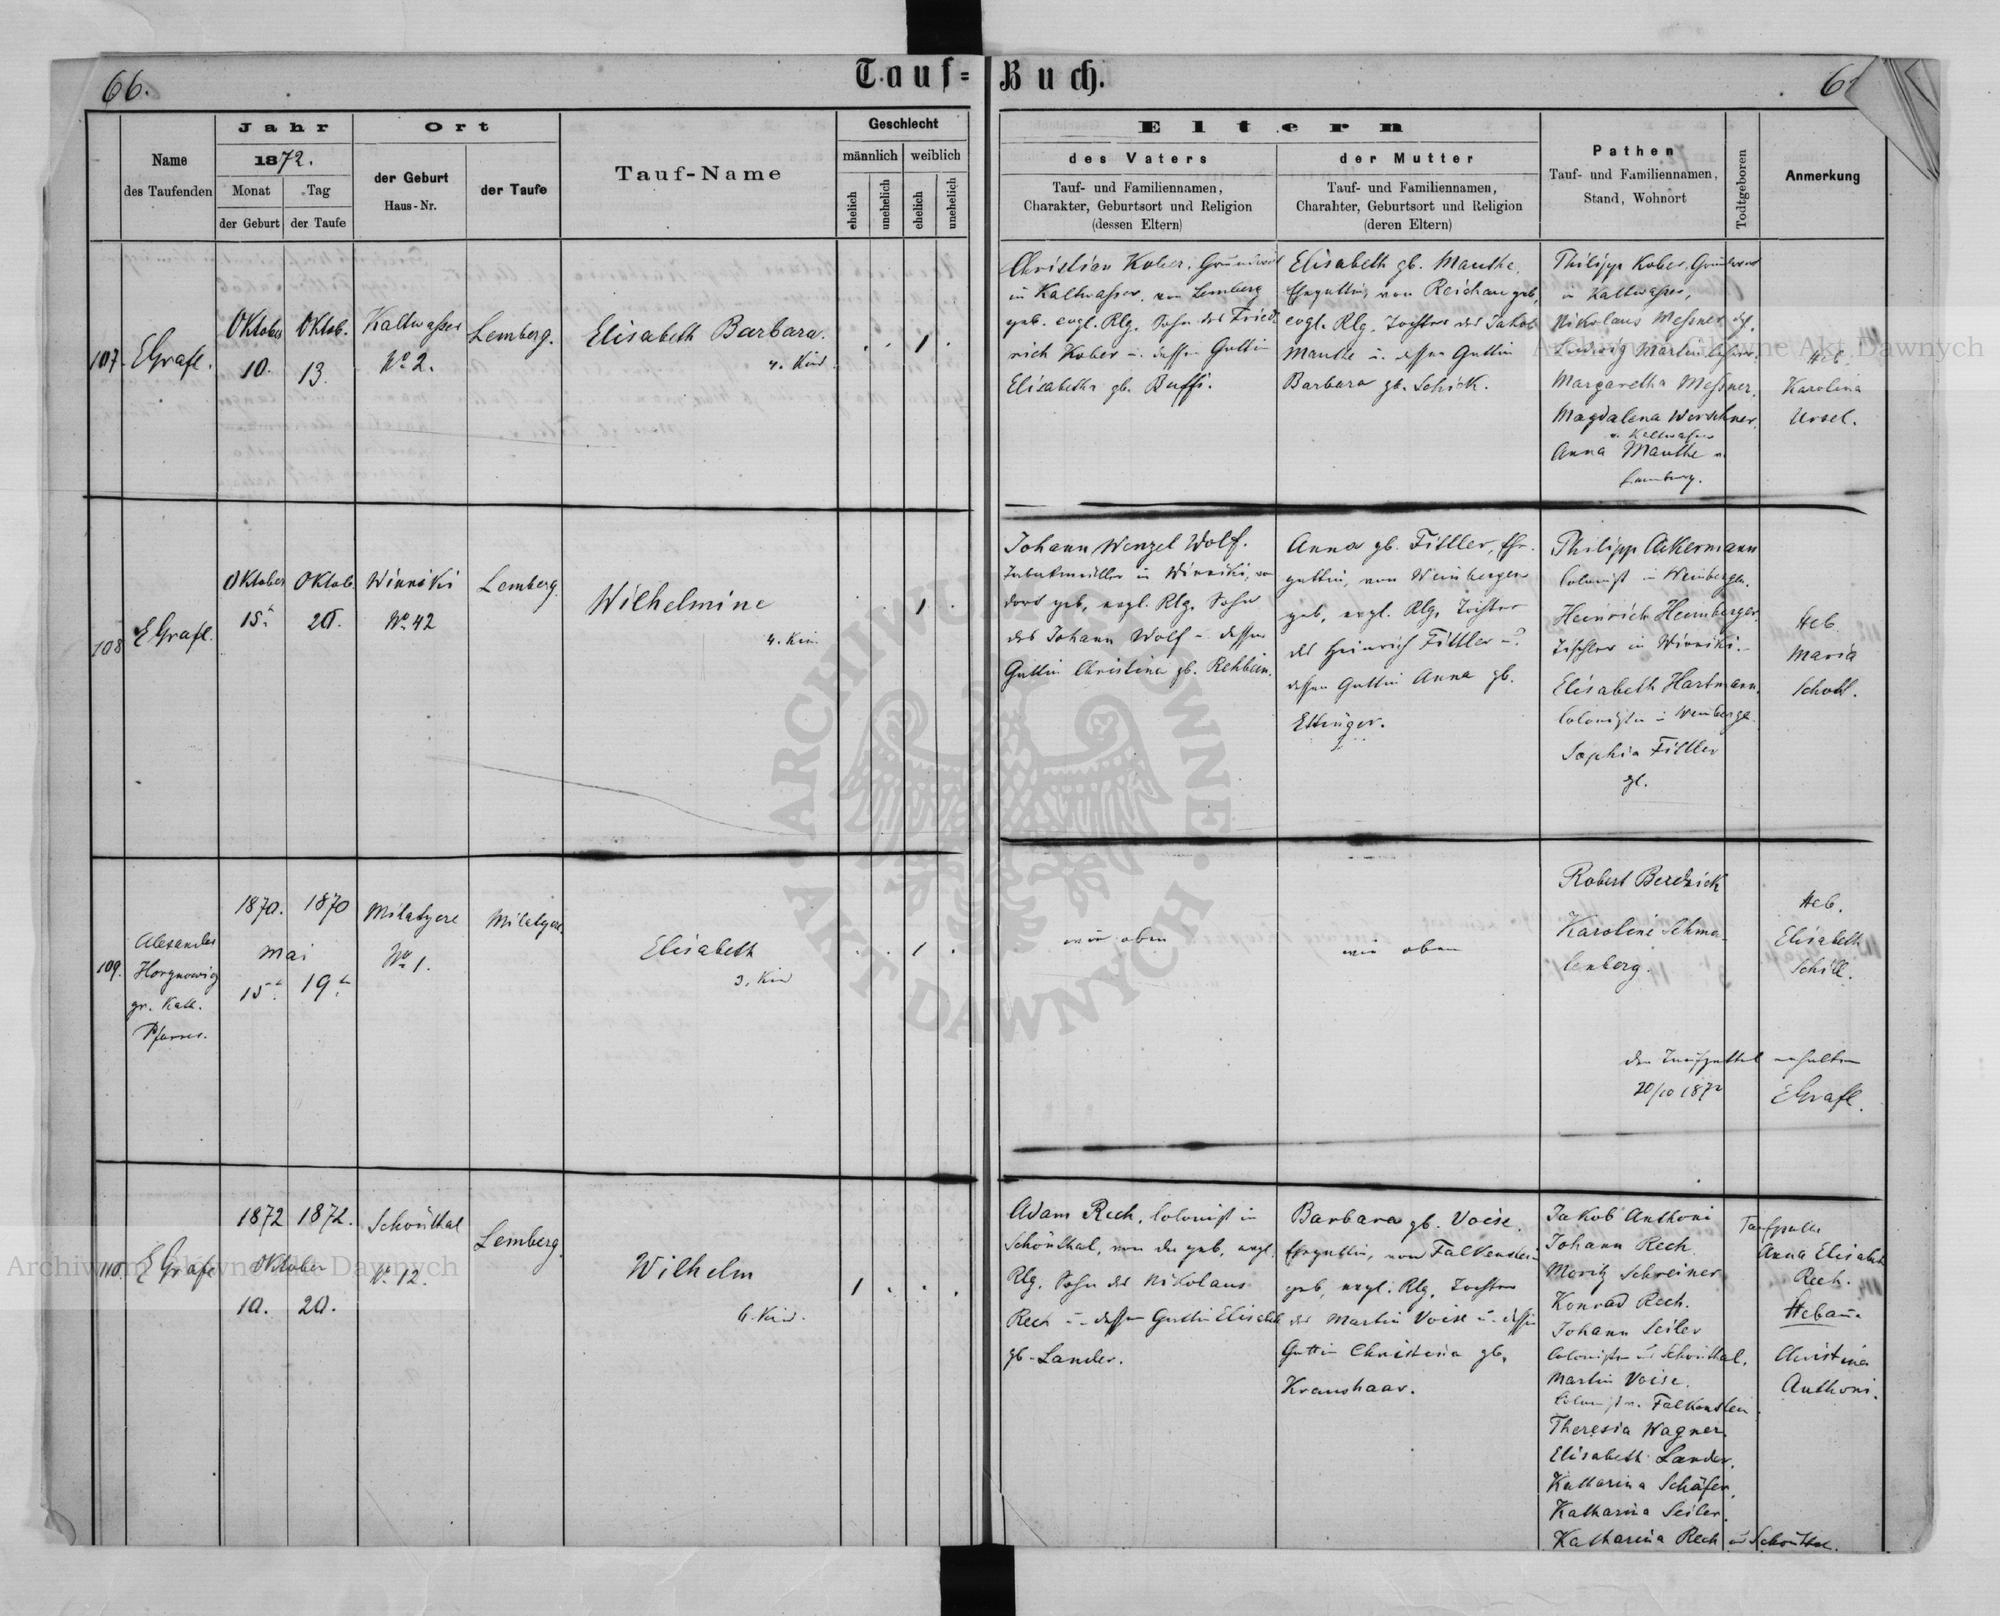 66.
Tauf=Buch.
Name
des Taufenden
Jahr
1872.
Monat
Tag
der Geburt
der Taufe
Ort
der Geburt
Haus-Nr.
der Taufe
Tauf-Name
Geschlecht
männlich
weiblich
ehelich
unehelich
ehelich
unehelich
Eltern
des Vaters
Tauf- und Familiennamen,
Charakter, Geburtsort und Religion
(dessen Eltern)
der Mutter
Tauf- und Familiennamen,
Charakter, Geburtsort und Religion
(deren Eltern)
Pathen
Tauf- und Familiennamen,
Stand, Wohnort
Todtgeboren
Anmerkung
107.
EGrafl.
Oktober
10.
Oktob.
13.
Kaltwasser
No 2.
Lemberg.
Elisabeth Barbara.
4. Kind.
. . 1 .
Christian Kober, Grundwirt
in Kaltwasser, von Lemberg
geb. evgl. Rlg. Sohn des Fried-
rich Kober u. dessen Gattin
Elisabetha gb. Buffi.
Elisabeth gb. Mauthe,
Ehegattin, von Reichau geb,
evgl. Rlg. Tochter des Jakob
Mauthe u. dessen Gattin
Barbara gb. Schick.
Philipp Kober, Grundwirt
in Kaltwasser,
Nikolaus Messner
Ludwig Martin
Margaretha Messner,
Magdalena Werschner,
v. Kaltwasser
Anna Mauthe v.
Lemberg.
Heb.
Karolina
Ursel.
108
EGrafl.
Oktober
15.
Oktob.
20.
Winniki
No 42
Lemberg.
Wilhelmine
4. Kin
. . 1 .
Johann Wenzel Wolf.
in Winniki, von
dort geb, evgl. Rlg. Sohn
des Johann Wolf u. dessen
Gattin Christina gb. Rehbein.
Anna gb. Fittler, Ehe-
gattin, von Weinbergen
geb, evgl. Rlg. Tochter
des Heinrich Fittler u.
dessen Gattin Anna gb.
Ettinger.
Philipp Ackermann
Colonist in Weinbergen.
Heinrich Heimberger
Tischler in Winniki.
Elisabeth Hartmann
Colonistin in Weinberge.
Sophia Fittler
Heb.
Maria
Scholl.
109.
Alexander
gr. Kath.
Pfarrer.
1870.
1870
Mai
15.
19.
Milatycze
No 1.
Milatycze.
Elisabeth
3. Kin
. . 1 .
wie oben
wie oben
Robert Berdzick
Karoline Schma-
lenberg.
Heb.
Elisabeth
Schill.
den erhalten
20/10 1872
EGrafl.
110.
EGrafl
1872
1872.
Oktober
10.
20.
Schönthal
No 12.
Lemberg.
Wilhelm
6. Kind.
1 . . .
Adam Rech, Colonist in
Schönthal, von da geb, evgl.
Rlg. Sohn des Nikolaus
Rech u. dessen Gattin Elisabeth
gb. Lander.
Barbara gb. Voise,
Ehegattin, von Falkenstein
geb, evgl. Rlg. Tochter
des Martin Voise u. dessen
Gattin Christina gb.
Kraushaar.
Jakob Anthoni
Johann Rech
Moritz Schreiner
Konrad Rech.
Johann Seiler
Colonisten in Schönthal.
Martin Voise.
Colonist v. Falkenstein.
Theresia Wagner.
Elisabeth Lander.
Katharina Schäfer,
Katharina Seiler.
Katharina Rech in Schönthal.
Anna Elisabeth
Rech.
Hebam.
Christina
Anthoni.
ARCHIWUM GŁÓWNE AKT DAWNYCH
Archiwum Główne Akt Dawnych
Archiwum Główne Akt Dawnych